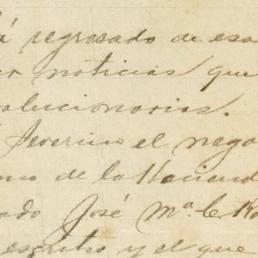 á regresado de esa
noticias que
volucionarios.
Severino el nego
de la Haciend
José Mª. le
escrito y el que